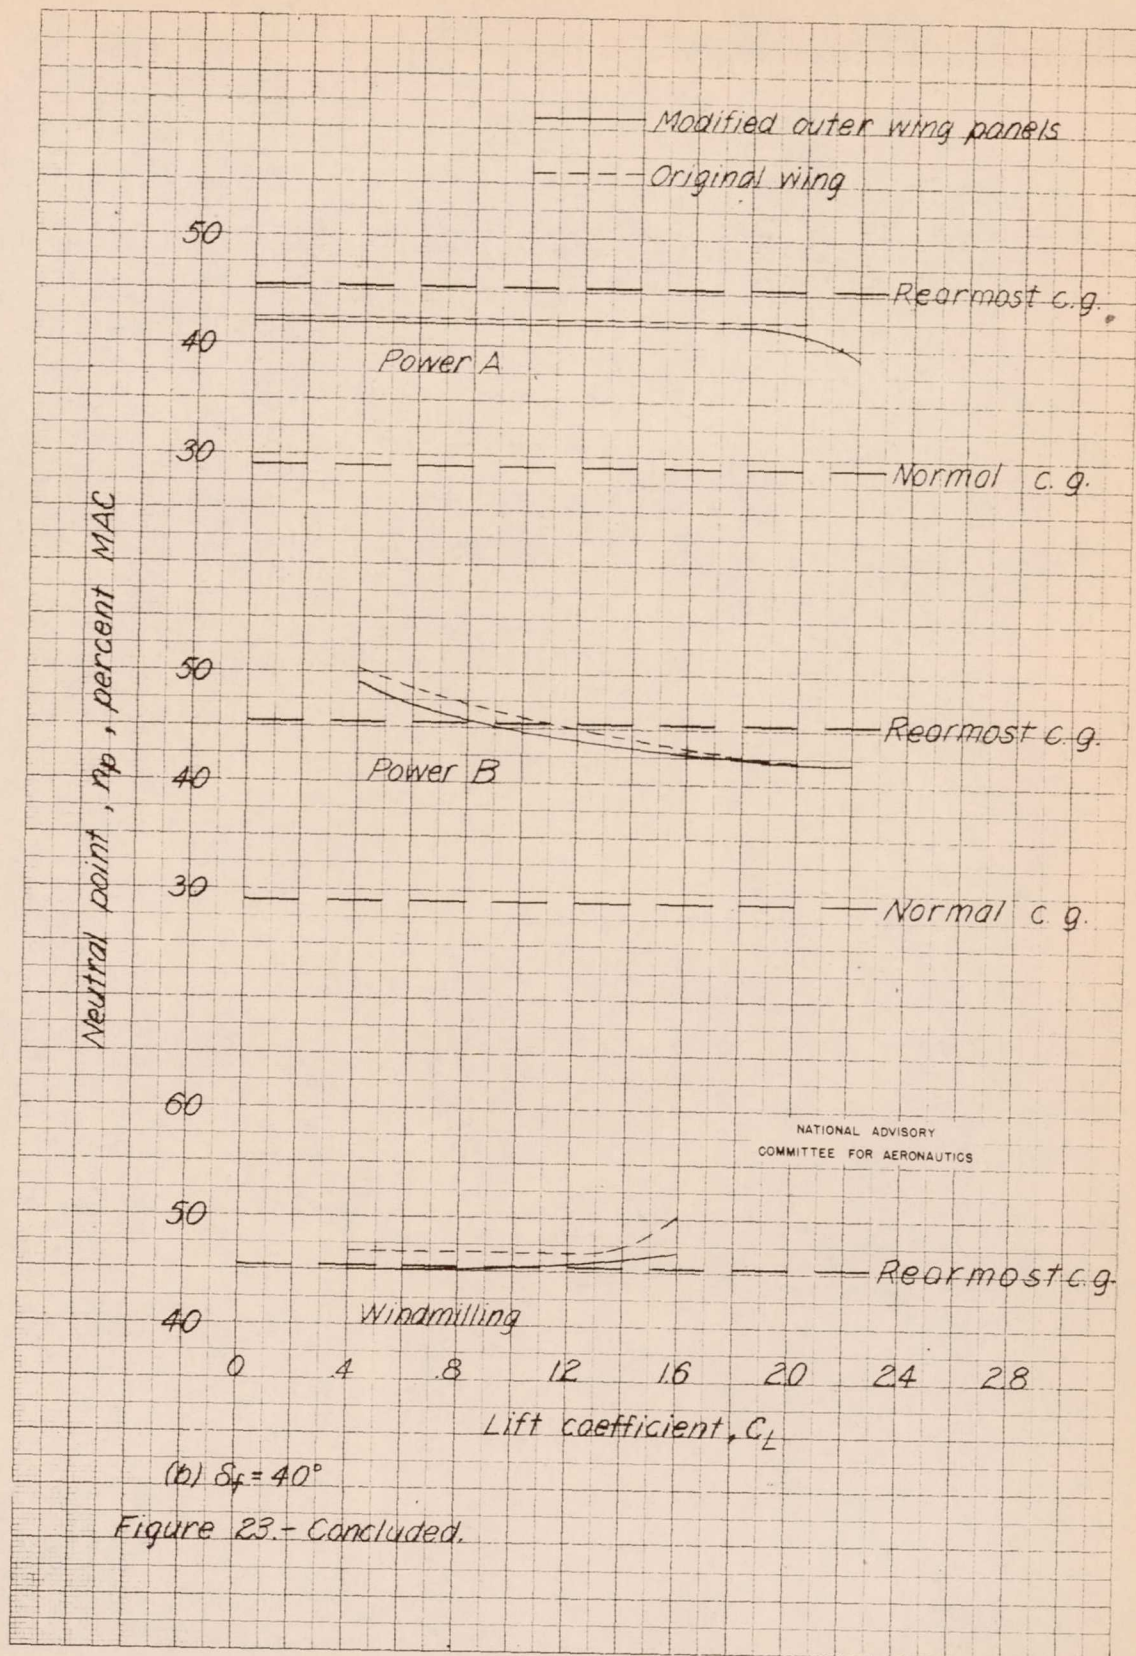 Modified outer wing panels
Original wing
50
Rearmost c.g.
40
Power A
30
Normal c. g.
Neutral point, np, percent MAC
50
Rearmost c. g.
Power B
40
30
Normal c. g.
60
NATIONAL ADVISORY
COMMITTEE FOR AERONAUTICS
50
Rearmost c.g.
40
Windmilling
0 .4 .8 1.2 1.6 2.0 2.4 2.8
Lift coefficient, CL
(b) δf = 40°
Figure 23.- Concluded.